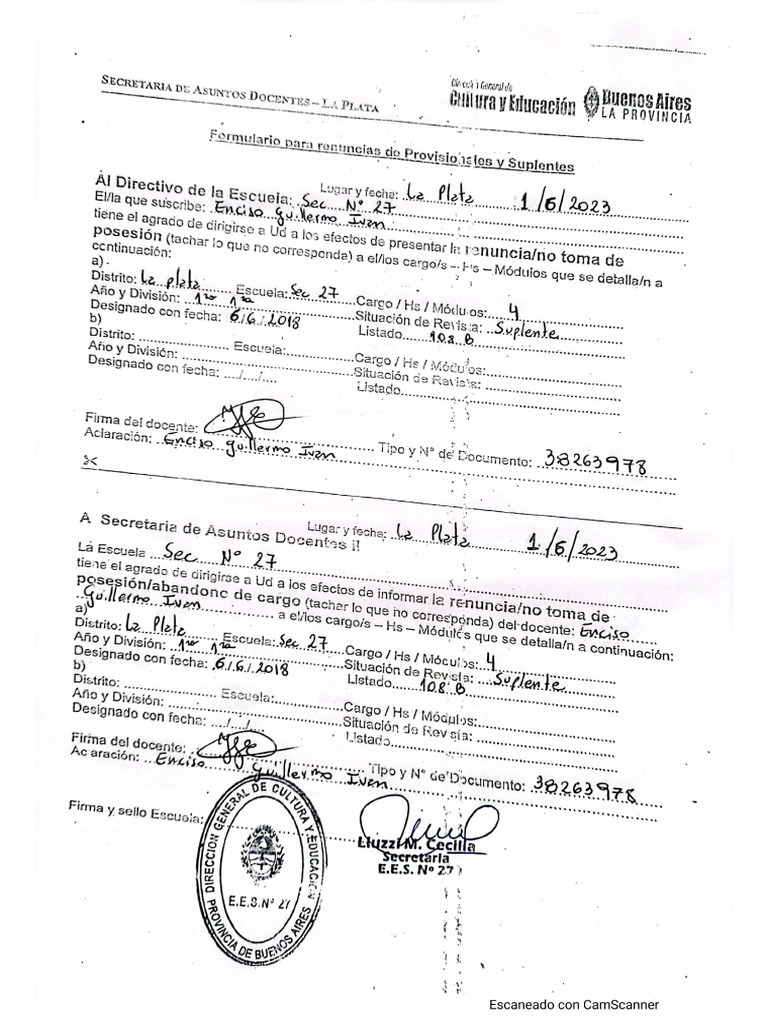 SECRETARIA DE ASUNTOS DOCENTES – LA PLATA
Dirección General de
Cultura y Educación
Buenos Aires
LA PROVINCIA
Formulario para renuncias de Provisionales y Suplentes
Lugar y fecha: La Plata 1/6/2023
Al Directivo de la Escuela: Sec Nº 27
El/la que suscribe: Enciso Guillermo Ivan
tiene el agrado de dirigirse a Ud a los efectos de presentar la renuncia/no toma de
posesión (tachar lo que no corresponda) a el/los cargo/s – Hs – Módulos que se detalla/n a
continuación:
a)
Distrito: La plata Escuela: Sec 27 Cargo / Hs / Módulos: 4
Año y División: 1ro 1ra Situación de Revista: Suplente
Designado con fecha: 6/6/2018 Listado 108 B
b)
Distrito: Escuela: Cargo / Hs / Módulos:
Año y División: Situación de Revista:
Designado con fecha: .../.../... Listado
Firma del docente:
Aclaración: Enciso Guillermo Ivan Tipo y N° de Documento: 38263978
Lugar y fecha: La Plata 1/6/2023
A Secretaria de Asuntos Docentes
La Escuela Sec Nº 27
tiene el agrado de dirigirse a Ud a los efectos de informar la renuncia/no toma de
posesión/abandono de cargo (tachar lo que no corresponda) del docente: Enciso
Guillermo Ivan a el/los cargo/s – Hs – Módulos que se detalla/n a continuación:
a)
Distrito: La Plata Escuela: Sec 27 Cargo / Hs / Módulos: 4
Año y División: 1ro 1ra Situación de Revista: Suplente
Designado con fecha: 6/6/2018 Listado 108 B
b)
Distrito: Escuela: Cargo / Hs / Módulos:
Año y División: Situación de Revista:
Designado con fecha: .../.../... Listado
Firma del docente:
Aclaración: Enciso Guillermo Ivan Tipo y N° de Documento: 38263978
Firma y sello Escuela:
Liuzzi M. Cecilia
Secretaria
E.E.S. Nº 27
DIRECCION GENERAL DE CULTURA Y EDUCACION
E.E.S. Nº 27
PROVINCIA DE BUENOS AIRES
Escaneado con CamScanner